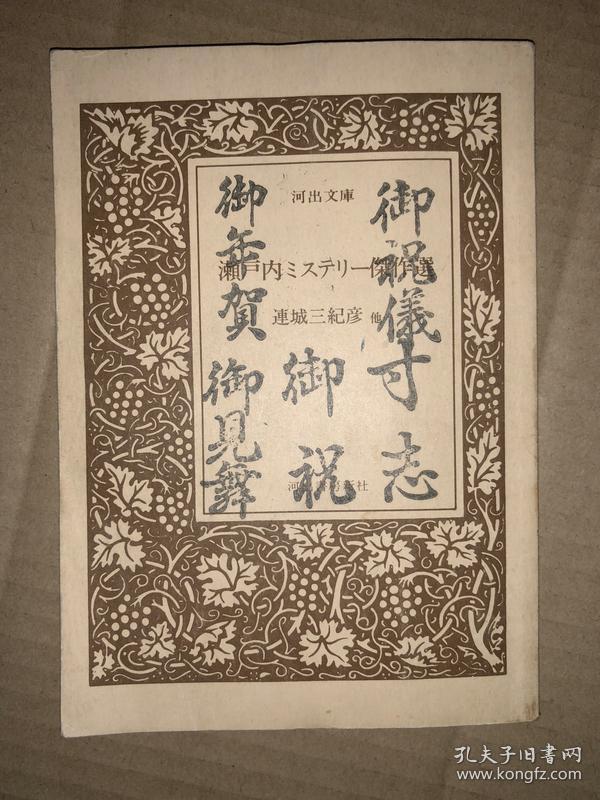 河出文庫
瀬戸内ミステリー傑作選
連城三紀彦 他
御祝儀
寸志
御祝
御年賀
御見舞
孔夫子旧书网
www.kongfz.com